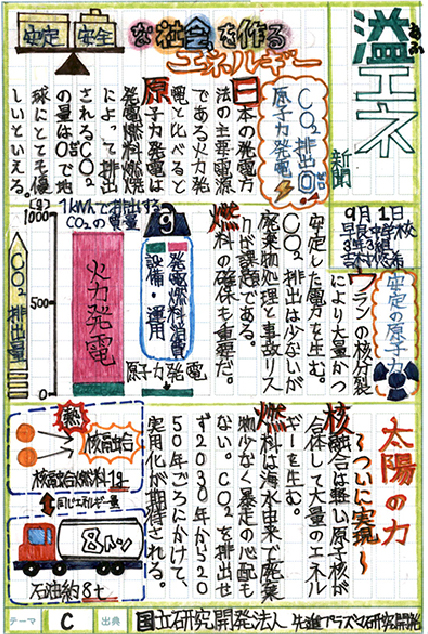 安定 安全 な社会を作る
エネルギー
溢エネ
あふ
新聞
9月1日
早良中学校
3年3組
CO₂排出0
原子力発電
日本の発電方
法の主要電源
である火力発
電と比べると
原子力発電は
発電燃料燃焼
によって排出
されるCO₂
の量は0で地
球にとても優
しいといえる。
安定の原子力
ウランの核分裂
により大量かつ
安定した電力を生む。
CO₂排出は少ないが
廃棄物処理と事故リス
クが課題である。
燃料の確保も重要だ。
(g)
1kWhで排出する
CO₂の質量
1000
500
0
CO₂排出量
火力発電
9
発電燃料燃焼
設備・運用
原子力発電
太陽の力
〜ついに実現〜
核融合は軽い原子核が
合体して大量のエネル
ギーを生む。
燃料は海水由来で廃棄
物少なく暴走の心配も
ない。CO₂を排出せ
ず2030年から20
50年ごろにかけて、
実用化が期待される。
熱
核融合
核融合燃料1g
同じエネルギー量
8トン
石油約8t
テーマ C 出典 国立研究開発法人 先進プラズマ研究開発